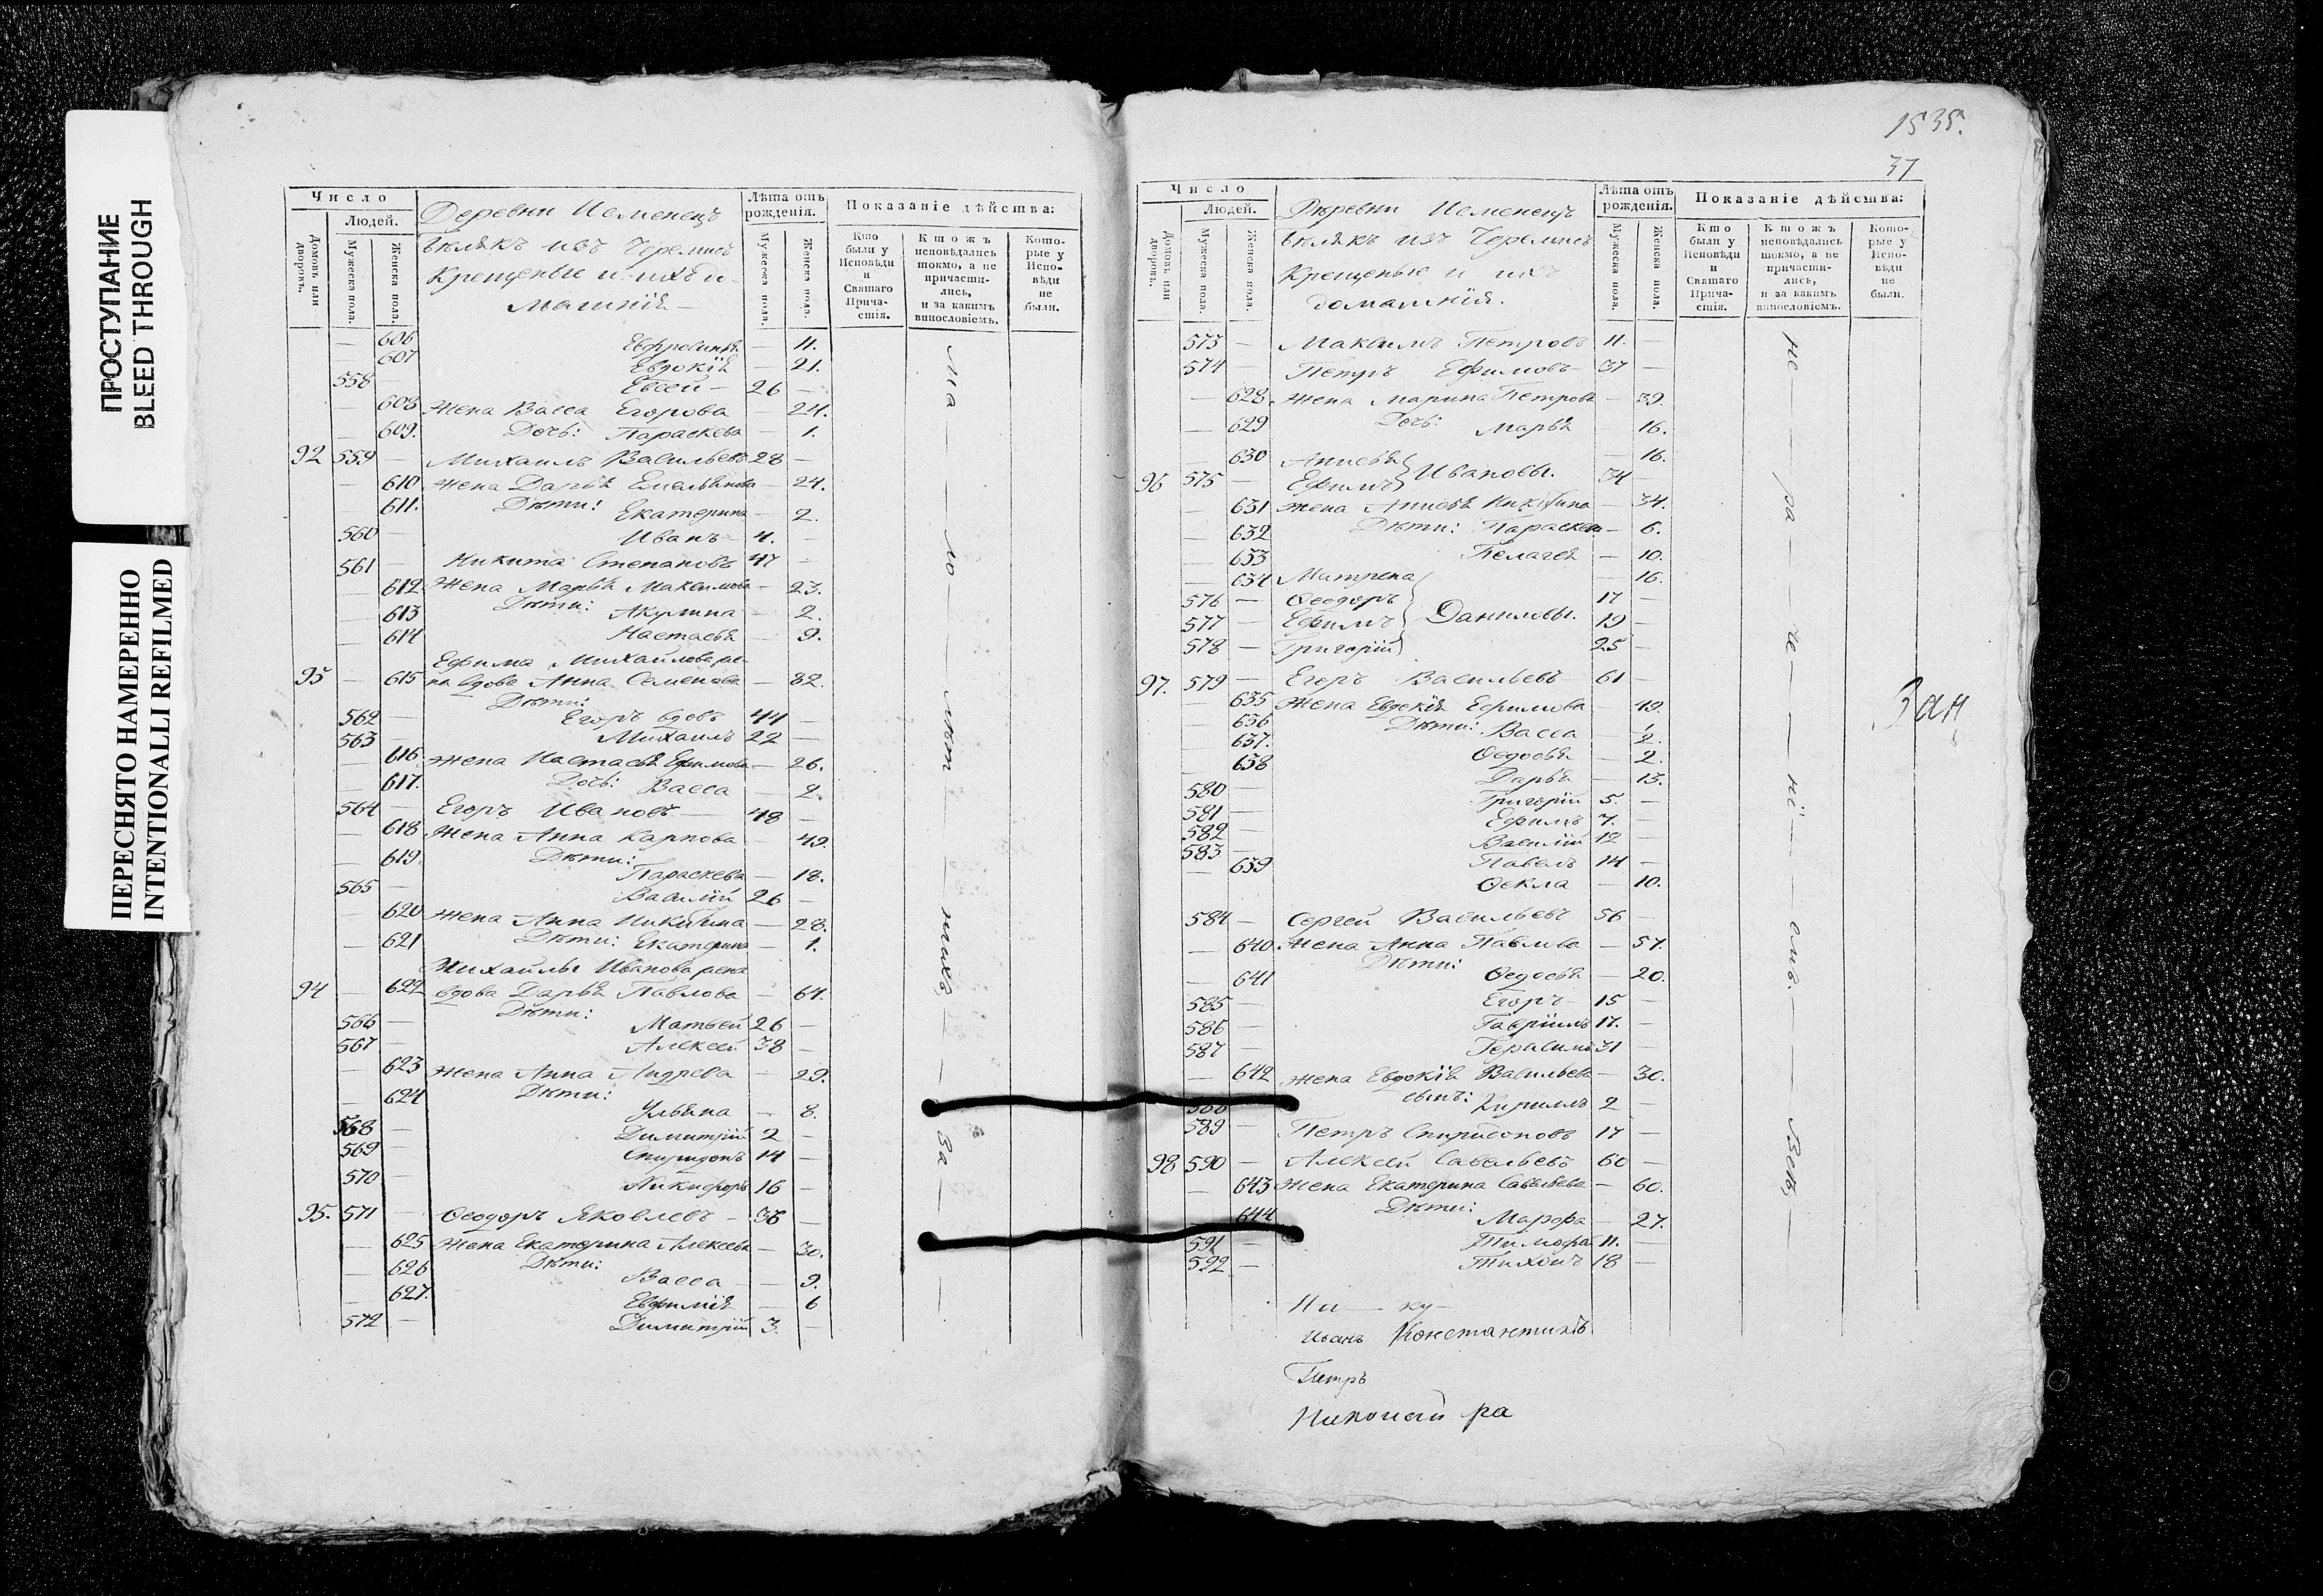 ПРОСТУПАНИЕ
BLEED THROUGH
ПЕРЕСНЯТО НАМЕРЕННО
INTENTIONALLI REFILMED
Число
Людей.
Домовъ или дворовъ.
Мужеска пола.
Женска пола.
Деревни
Крещеные и ихъ
Лѣта отъ рожденія.
Мужеска пола.
Женска пола.
Показаніе дѣйства:
Кто были у Исповѣди и Святаго Причастія.
Ктожъ исповѣдались токмо, а не причастились, и за какимъ винословіемъ.
Которые у Исповѣди не были.
— 606 Евфросинья — 11.
— 607 Евдокія — 21.
558 — Евсей — 26 —
— 608 Жена Васса Егорова — 24.
— 609. Дочь: Параскева — 1.
92 559 — Михаилъ Васильевъ 28 —
— 610 Жена Дарья Емельянова — 24.
— 611. Дѣти: Екатерина — 2.
560 — Иванъ 4. —
561 — Никита Степановъ 47 —
— 612 Жена Марья Максимова — 23.
— 613 Дѣти: Акулина — 2.
— 614 Настасья — 9.
Ефима Михайлова же-
93 — 615 на вдова Анна Семенова — 82.
Дѣти:
562 — Егоръ вдовъ 44 —
563 — Михаилъ 22 —
— 616 Жена Настасья Ефимова — 26.
— 617. Дочь: Васса — 2.
564 — Егоръ Ивановъ — 48 —
— 618 Жена Анна Карпова — 49.
— 619. Дѣти: Параскева — 18.
565 — Василій 26 —
— 620 Жена Анна Никитина — 28.
— 621 Дѣти: Екатерина — 1.
Михайлы Иванова жена
94 — 622 вдова Дарья Павлова — 64.
Дѣти:
566 — Матвей 26 —
567 — Алексей 38 —
— 623 Жена Анна Андреева — 29.
— 624 Дѣти: Ульяна — 8.
568 — Димитрій 2 —
569 — Спиридонъ 14 —
570 — Никифоръ 16 —
95. 571 — Ѳеодоръ Яковлевъ — 38 —
— 625 Жена Екатерина Алексева — 30.
— 626 Дѣти: Васса — 9.
— 627. Евфимія — 6
572 — Димитрій 3. —
1535.
37
Число
Людей.
Домовъ или дворовъ.
Мужеска пола.
Женска пола.
Деревни
Крещеные и ихъ
домашнія.
Лѣта отъ рожденія.
Мужеска пола.
Женска пола.
Показаніе дѣйства:
Кто были у Исповѣди и Святаго Причастія.
Ктожъ исповѣдались токмо, а не причастились, и за какимъ винословіемъ.
Которые у Исповѣди не были.
573 — Максимъ Петровъ 11. —
574 — Петръ Ефимовъ 37 —
— 628 Жена Марина Петрова — 39.
— 629 Дочь: Марья — 16.
— 630 Анисья — 16.
Ивановы.
96 575 — Ефимъ 34 —
— 631 Жена Анисья Никитина — 34.
— 632 Дѣти: Параскева — 6.
— 633 Пелагея — 10.
— 634 Матрена — 16.
576 — Ѳеодоръ 17 —
577 — Ефимъ Даниловы. 19 —
578 — Григорій 25 —
97. 579 — Егоръ Васильевъ 61 —
— 635 Жена Евдокія Ефимова — 49.
— 636 Дѣти: Васса — 2.
— 637. Ѳедосья — 2.
— 638 Дарья — 13.
580 — Григорій 5. —
581 — Ефимъ 7. —
582 — Василій 12
583 — Павелъ 14 —
— 639 Ѳекла — 10.
584 — Сергей Васильевъ 56 —
— 640 Жена Анна Павлова — 57.
Дѣти:
— 641 Ѳедосья — 20.
585 — Егоръ 15 —
586 — Гавріилъ 17. —
587 — Герасимъ 31 —
— 642 Жена Евдокія Васильева — 30.
588 сынъ: Кириллъ 2 —
589 — Петръ Спиридоновъ 17 —
98 590 — Алексей Савельевъ 60 —
— 643 Жена Екатерина Савельева — 60.
Дѣти:
644 Марфа — 27.
591 — Тимофей 11. —
592 — Тихонъ 18 —
Зан
Иванъ
Петръ
Николай ра